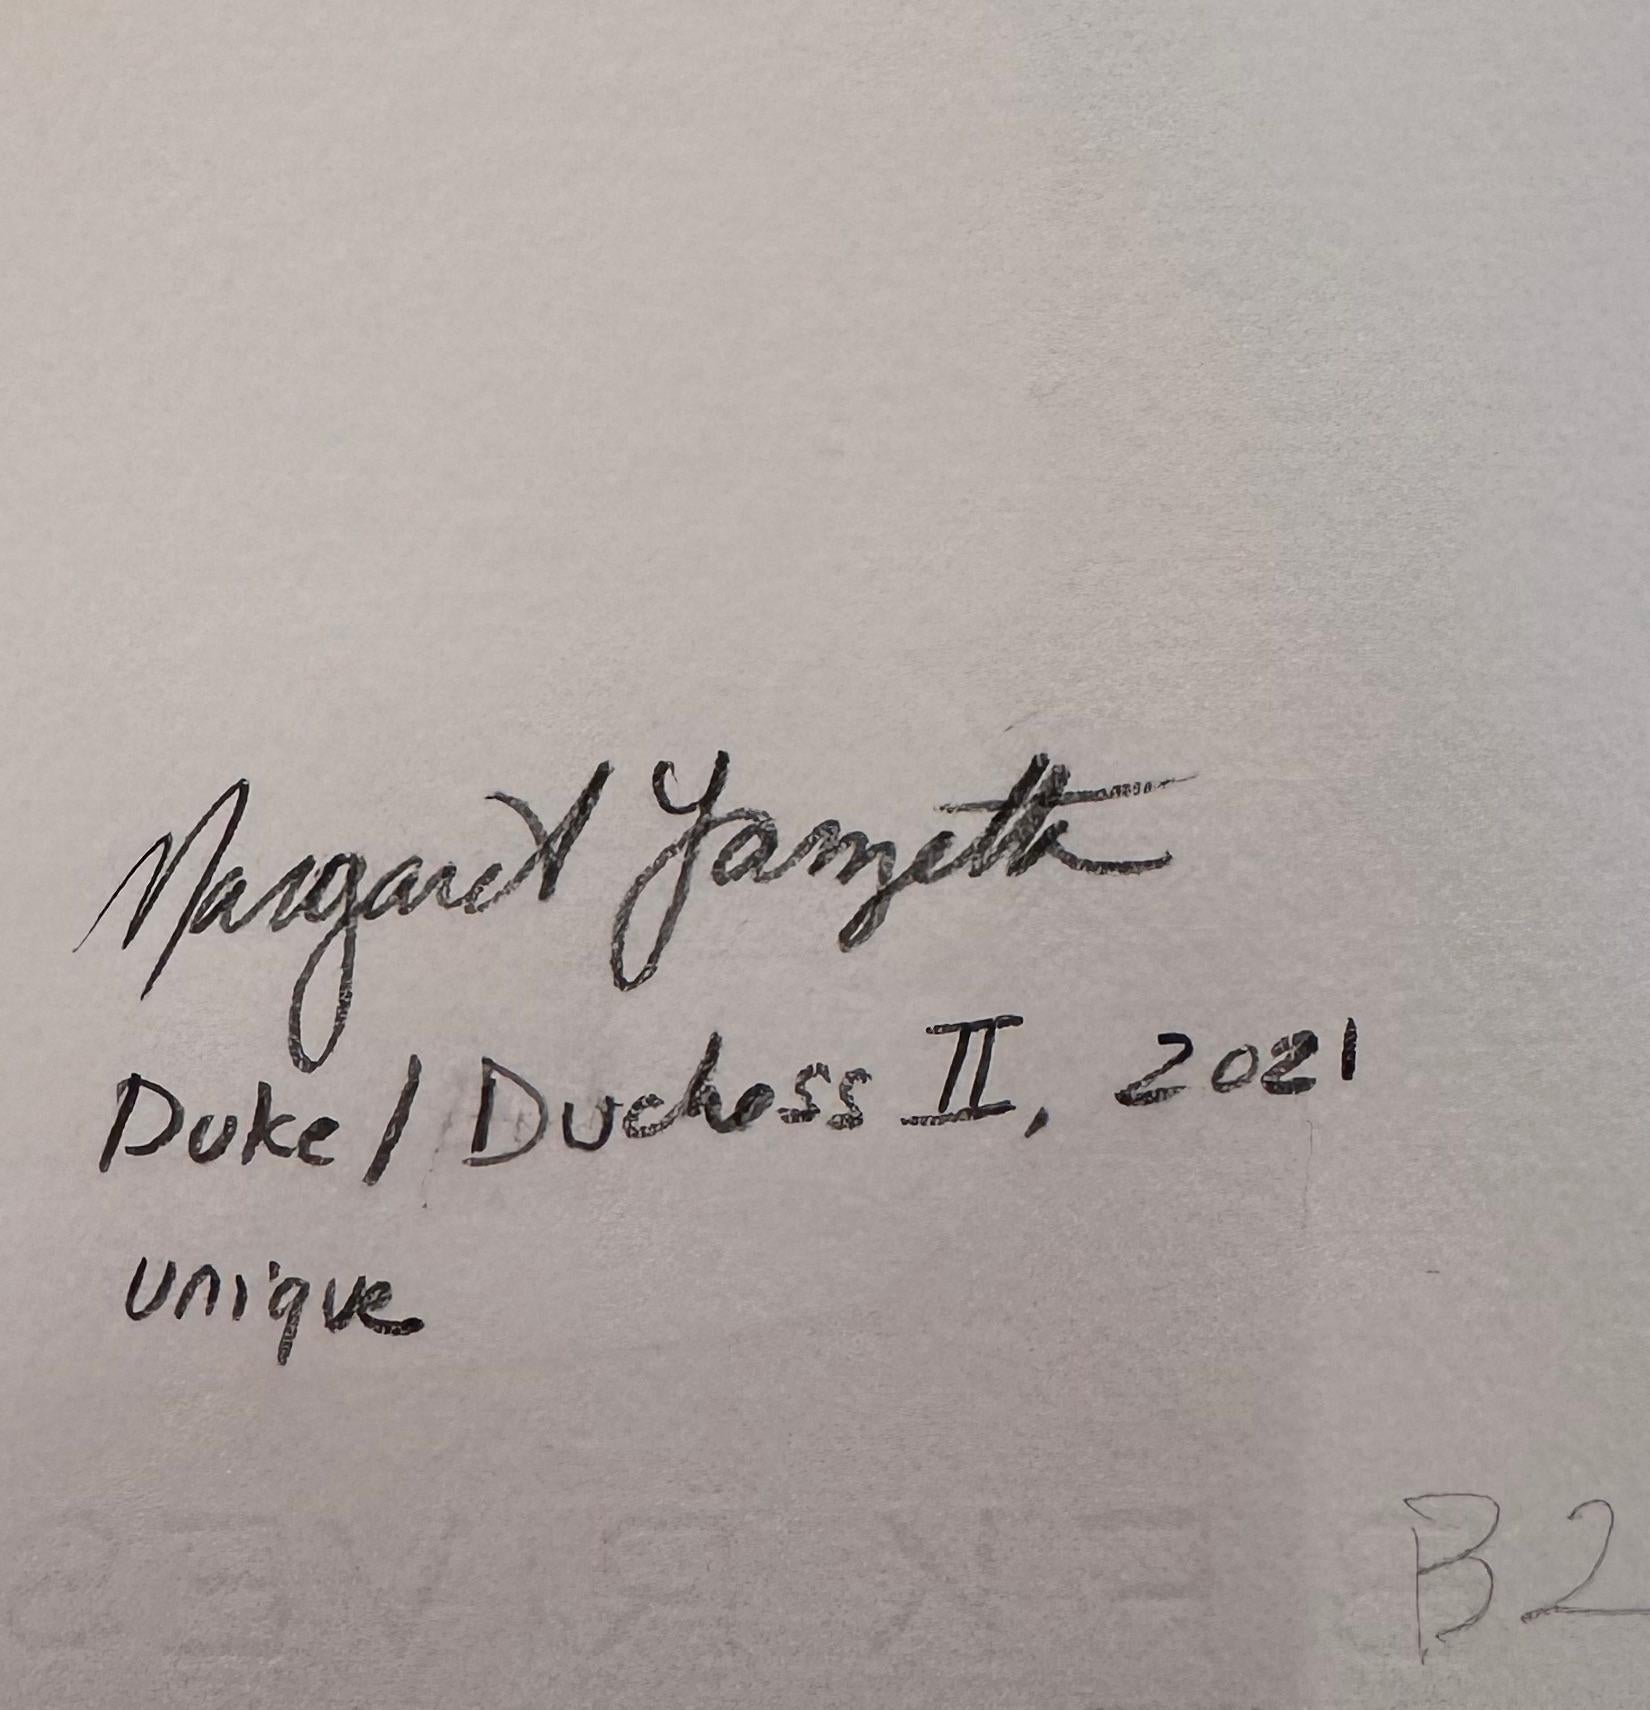 Margaret Lanzetta
Duke/Duchess II, 2021
unique
B2